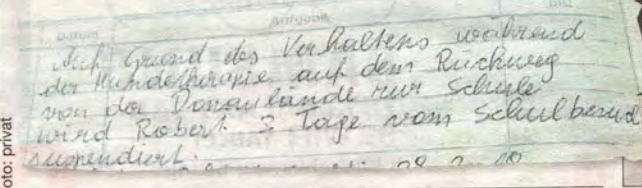 Datum Aufgabe Bis
Auf Grund des Verhaltens während
der Hundetherapie auf dem Rückweg
von der Donaulände zur Schule
wird Robert 3 Tage vom Schulbesuch
suspendiert.
oto: privat